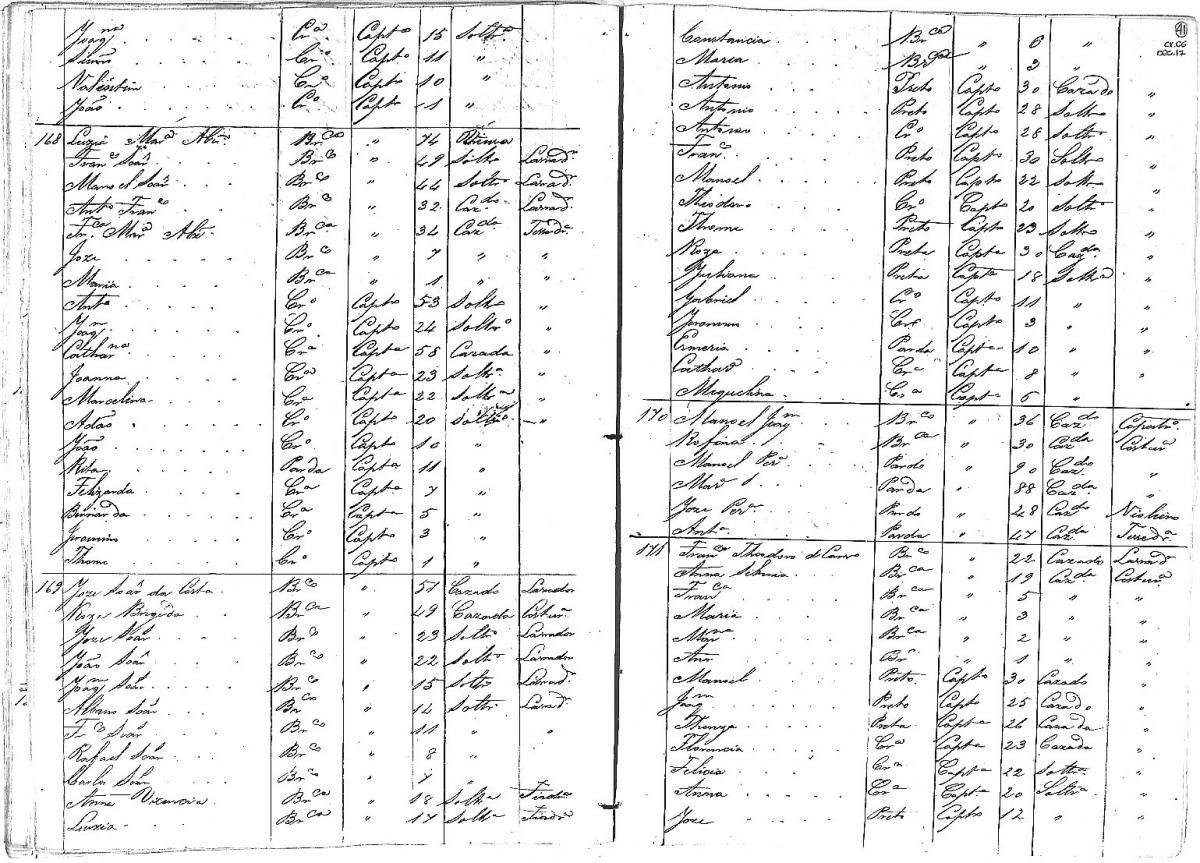 Joaqna Cra Capta 15 Soltra
Simão Cro Capto 11 "
Valentim Cro Capto 10 "
João Cro Capto 1 "
168 Luzia Mara Brca " 74 Viuva
Franco Soār Brco " 49 Soltro Lavrador
Manoel Soār Brco " 44 Soltro Lavrador
Anto Franco Brco " 32 Cazdo Lavrador
Fca Mara Brca " 34 Cazda
Joze Brco " 7 " "
Maria Brca " 1 " "
Anto Cro Capto 53 Soltro "
Joaqm Cro Capto 24 Soltro "
Catharna Cra Capta 58 Cazada "
Joanna Cra Capta 23 Soltra "
Marcelina Cra Capta 22 Soltra "
Adão Cro Capto 20 Soltro "
João Cro Capto 10 "
Rita Parda Capta 11 "
Felizarda Cra Capta 7 "
Bernarda Cra Capta 5 "
Jeronimo Cro Capto 3 "
Thome Cro Capto 1 "
169 Joze Soār da Costa Brco " 51 Cazado Lavrador
Roza Brigida Brca " 49 Cazada Costura
Joze Soār Brco " 23 Soltro Lavrador
João Soār Brco " 22 Soltro Lavrador
Joaqm Soār Brco " 15 Soltro Lavrador
Albano Soār Brco " 14 Soltro Lavrador
Frco Soār Brco " 11 " "
Rafael Soār Brco " 8 "
Carlos Soār Brco " 7 "
Anna Vicencia Brca " 18 Soltra
Luzia Brca " 17 Soltra
41
CX.06
DEC.17
Constancia Brca " 6 "
Maria Brca " 3 "
Antonio Preto Capto 30 Cazado "
Antonio Preto Capto 28 Soltro "
Antonio Cro Capto 28 Soltro "
Franco Preto Capto 30 Soltro "
Manoel Preto Capto 22 Soltro "
Theodoro Cro Capto 20 Soltro "
Thome Preto Capto 23 Soltro "
Roza Preta Capta 30 Cazda "
Juliana Preta Capta 18 Soltra "
Gabriel Cro Capto 11 " "
Jeronimo Cro Capto 3 " "
Parda Capta 10 " "
Catharina Cra Capta 8 " "
Miquelina Cra Capta 6 "
170 Manoel Joaqm Brco " 36 Cazdo
Rofina Brca " 30 Cazda Costura
Manoel Pera Pardo " 90 Cazdo "
Mara Parda " 88 Cazda "
Joze Pera Pardo " 48 Cazdo
Anta Parda " 47 Cazda
171 Franco Theodoro de Brco " 22 Cazado Lavrador
Anna Brca " 19 Cazda Costura
Franca Brca " 5 " "
Maria Brca " 3 " "
Marna Brca " 2 " "
Ann Br " 1 " "
Manoel Preto Capto 30 Cazado "
Joaqm Preto Capto 25 Cazado "
Thereza Preta Capta 26 Cazada "
Florencia Cra Capta 23 Cazada "
Felicia Cra Capta 22 Soltra "
Anna Cra Capta 20 Soltra "
Joze Preto Capto 12 " "